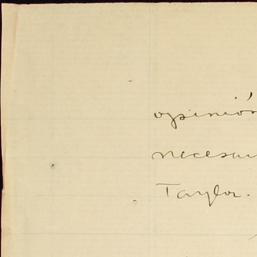 opinión
necesa
Taylor.